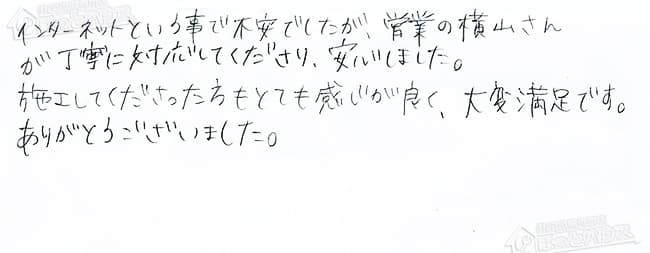 インターネットという事で不安でしたが、営業の横山さん
が丁寧に対応してくださり、安心しました。
施工してくださった方もとても感じが良く、大変満足です。
ありがとうございました。